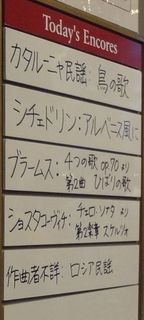 Today's Encores
カタルーニャ民謡：鳥の歌
シチェドリン：アルベニス風に
ブラームス：4つの歌 op.70 より
第2曲 ひばりの歌
ショスタコーヴィチ：チェロ・ソナタ より
第2楽章 スケルツォ
作曲者不詳：ロシア民謡